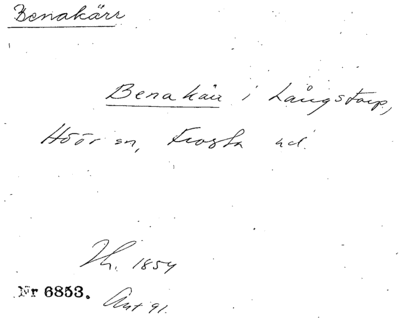 Benakärr
Benakärr i Långstorp,
Höör sn, Frosta hd.
Th. 1854
Nr 6853. Ant 91.